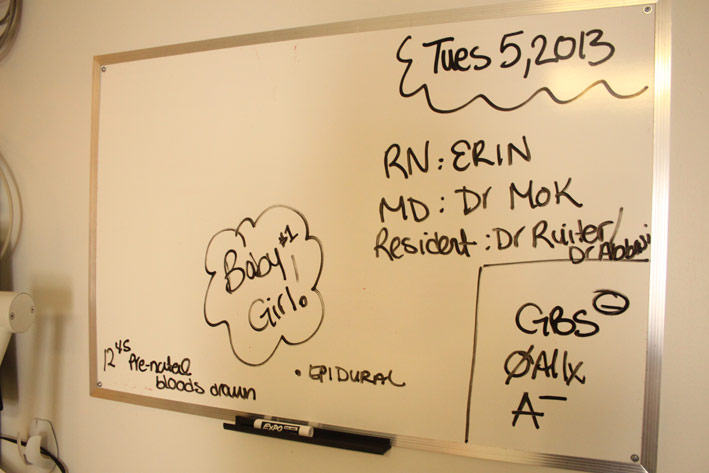 Tues 5, 2013
RN: ERIN
MD: Dr Mok
Resident: Dr Ruiter/
Dr Abbasi
Baby #1
Girl!
GBS⊖
ØAllx
A-
12 45 Pre-natal
bloods drawn
• EPIDURAL
EXPO